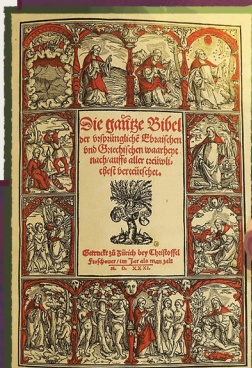 Die gantze Bibel
der vrsprüngliche Ebraischen
vnd Griechischen waarheyt
nach/auffs aller treüwli-
chest verteütschet.
Getruckt zů Zürich bey Christoffel
Froschouer/im Jar als man zalt
M. D. XXXI.